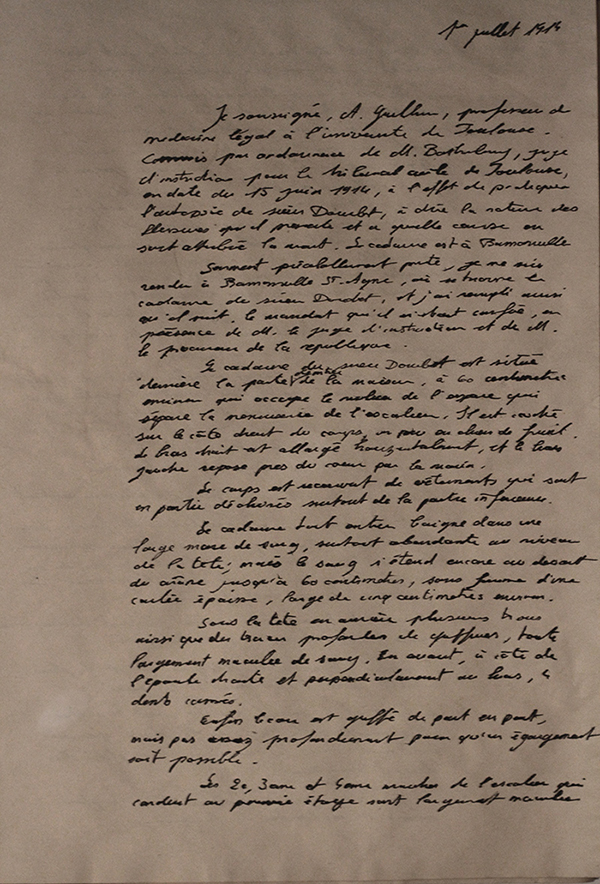 1er juillet 1914
Je soussigné, A. Guillun, professeur de
médecine légal à l'université de Toulouse.
Commis par ordonnance de M. Barthélemy, juge
d'instruction pour le tribunal civile de Toulouse,
en date du 15 juin 1914, à l'effet de pratiquer
l'autopsie de sieur Doubot, à dire la nature des
blessures qu'il présente et a quelle cause en
soit attribué la mort. Le cadavre est à Bamonville
Serment préalablement prêté, je me suis
rendu à Bamonville St-Agne, où se trouve le
cadavre de sieur Doubot, et j'ai rempli ainsi
qu'il suit, le mandat qu'il m'était confié, en
présence de M. le juge d'instruction et de M.
le procureur de la république.
Le cadavre du sieur Doubot est situé
derrière la porte de la maison, à 60 centimètres
environ qui occupe le milieu de l'espace qui
sépare la de l'escalier. Il est couché
sur le côté droit du corps, un peu au chien de fusil.
Le bras droit est allongé horizontalement, et le bras
gauche repose pres du coeur par la main.
Le corps est recouvert de vêtements qui sont
en partie déchirés surtout de la partie inférieure.
Le cadavre tout entier baigne dans une
large mare de sang, surtout abondante au niveau
de la tête; mais le sang s'étend encore au dessus
du crâne jusqu'à 60 centimètres, sous forme d'une
couche épaisse, large de cinq centimètres environ.
Sous la tete en arrière plusieurs trous
ainsi que des traces profondes de griffures, toute
largement maculée de sang. En avant, à côté de
l'épaule droite et perpendiculairement au bras, 4
dents carrées.
Enfin le cou est griffé de part en part,
mais pas assez profondément pour qu'un égorgement
soit possible.
Les 2e, 3eme et 4eme marches de l'escalier qui
conduit au premier étage sont largement maculées